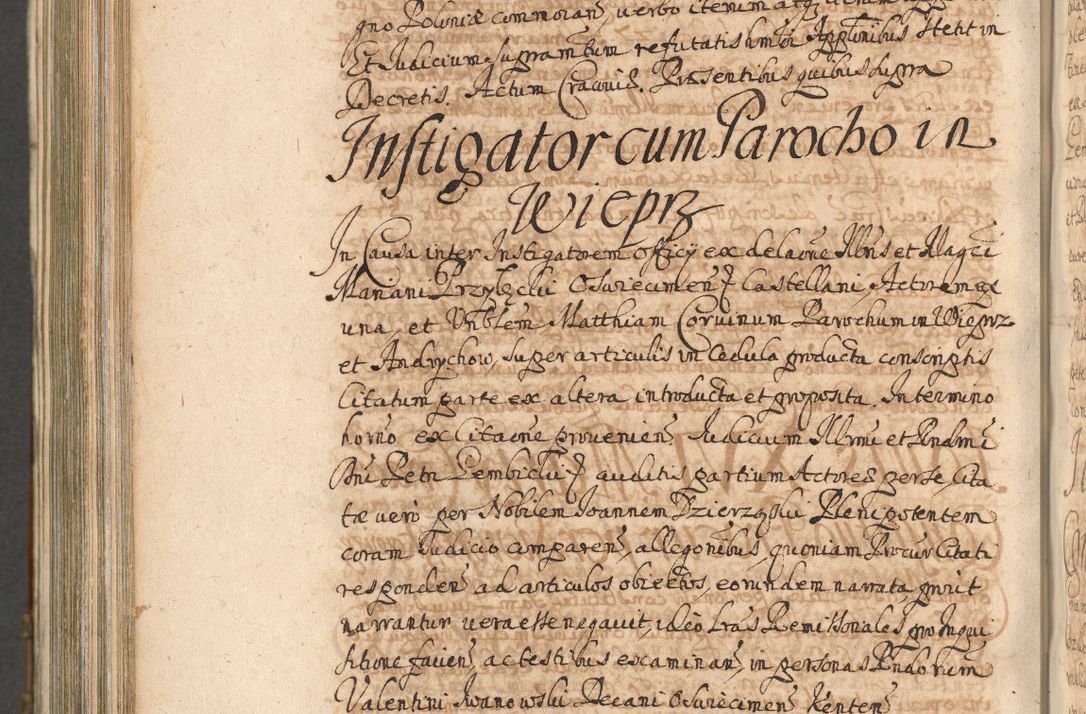 gno Poloniæ commoran, verbo itenim atq;
Et Iudicium supram̄tum refutatis hm̄oi Appōnibus stetit in
Decretis. Actum Cracoviæ. Præsentibus quibus supra
Instigator cum Parocho in
Wieprz
In Causa inter Instigatorem officij ex delaōne Illris et Magci
Mariani Przyłęcki Osviecimen Castellani, Actorem ex
una, et Vnblem Matthiam Corvinum Parochum in Wieprz
et Andrychow, super articulis in Cedula producta conscriptis
Citatum parte ex altera introducta et proposita. In termino
horno ex Citaōne provenien Iudicium Illrmi et Rndmi
Dni Petri Gembicki auditis partium Actoreæ per se, Cita
tæ vero per Nobilem Ioannem Dzierzgski Plenipotentem
coram Iudicio comparen, allegōnibus, quoniam Procur Citati
responden ad articulos obiectos, eorundem narrata, prout
narrantur vera esse negavit, ideo Lras Remissoriales pro Inqui
sitione facien, ac testibus examinan, in personas Rndorum
Valentini Iwanowski Decani Osviecimen Kenten